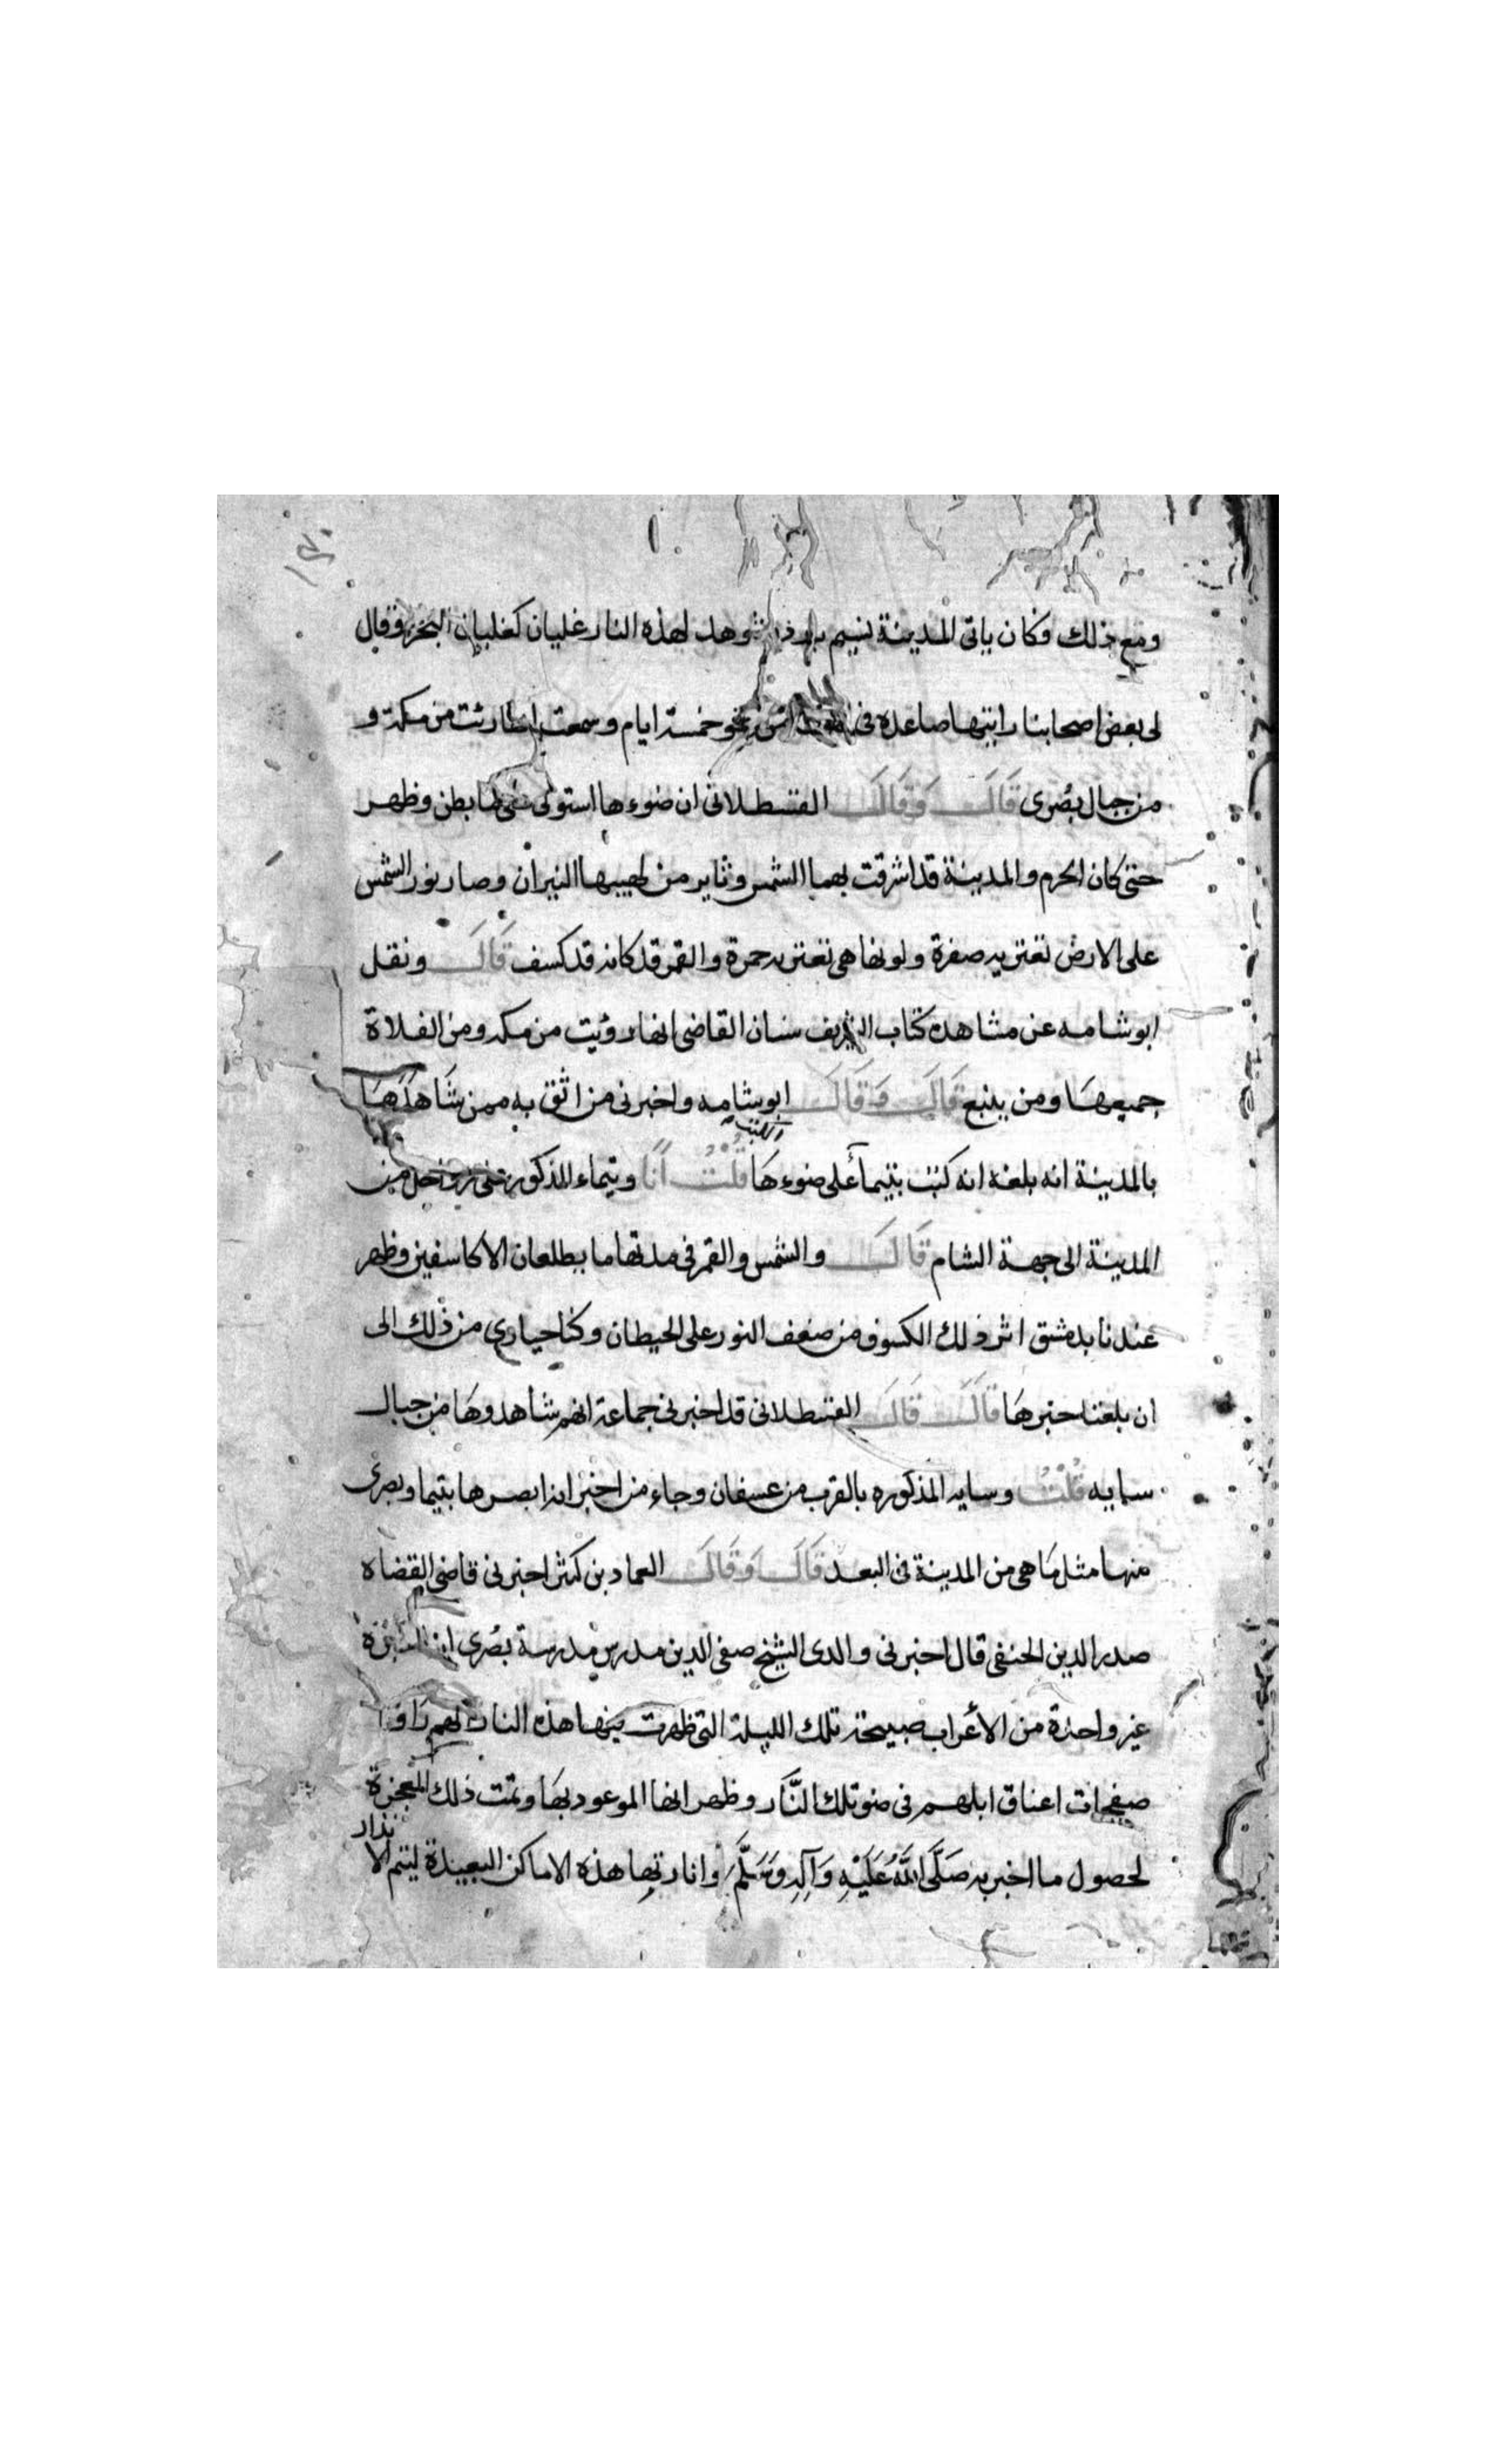 ومع ذلك وكان ياتى المدينة نسيم بارد وشوهد لهذه النار غليان كغليان البحر وقال
لى بعض اصحابنا رايتها صاعده فى نحو خمسة ايام وسمعت انها رئت من مكة و
من جبال بصرى قَالَ وَقَالَ القسطلانى ان ضوءها استولى على ما بطن وظهر
حتى كان الحرم والمدينة قد اشرقت بهما الشمس وتاير من لهيبها النيران وصار نور الشمس
على الارض تعتريه صفرة ولونها هى تعتريه حمرة والقمر قد كانه قد كسف قَالَ ونقل
ابو شامه عن مشاهدة كتاب الشريف سنان القاضى انها رؤيت من مكه ومن الفلاة
جميعهَا ومن ينبع قَالَ وَقَالَ ابو شامه واخبرنى من اثق به ممن شَاهَدَهَا
بالمدينة انه بلغه انه كتب بتيمآ على ضوءهَا الكتب قُلْتُ انَا وتيماء المذكور من
المدينة الى جهة الشام قَالَ والشمس والقمر فى مدتها ما يطلعان الا كاسفين وظهر
عندنا بدمشق اثر ذلك الكسوف من ضعف النور على الحيطان وكنا حيارى من ذلك الى
ان بلغنا خبرهَا قَالَ قَالَ القسطلانى قد اخبرنى جماعة انهم شاهدوهَا من جبال
سايه قُلْتُ وسايه المذكوره بالقرب من عسفان وجاء من اخبر انه ابصرها بتيما وبصرى
منها مثل مَا هى من المدينة فى البعد قَالَ وَقَالَ العماد بن كثير اخبرنى قاضى القضاه
صدر الدين الحنفى قال اخبرنى والدى الشيخ صفى الدين مدرس مدرسة بصرى انه اخبره
غير واحدة من الأعراب صبيحة تلك الليلة التى ظهرت فيها هذه النار انهم رَاوا
صفحات اعناق ابلهم فى ضو تلك النَّار وظهر انها الموعود بهَا وتمت ذلك المعجزة
لحصول ما اخبر به صَلَّى اللَّهُ عَلَيْهِ وَآلِهِ وَسَلَّمَ وانارتها هذه الاماكن البعيدة ليتم الانذار